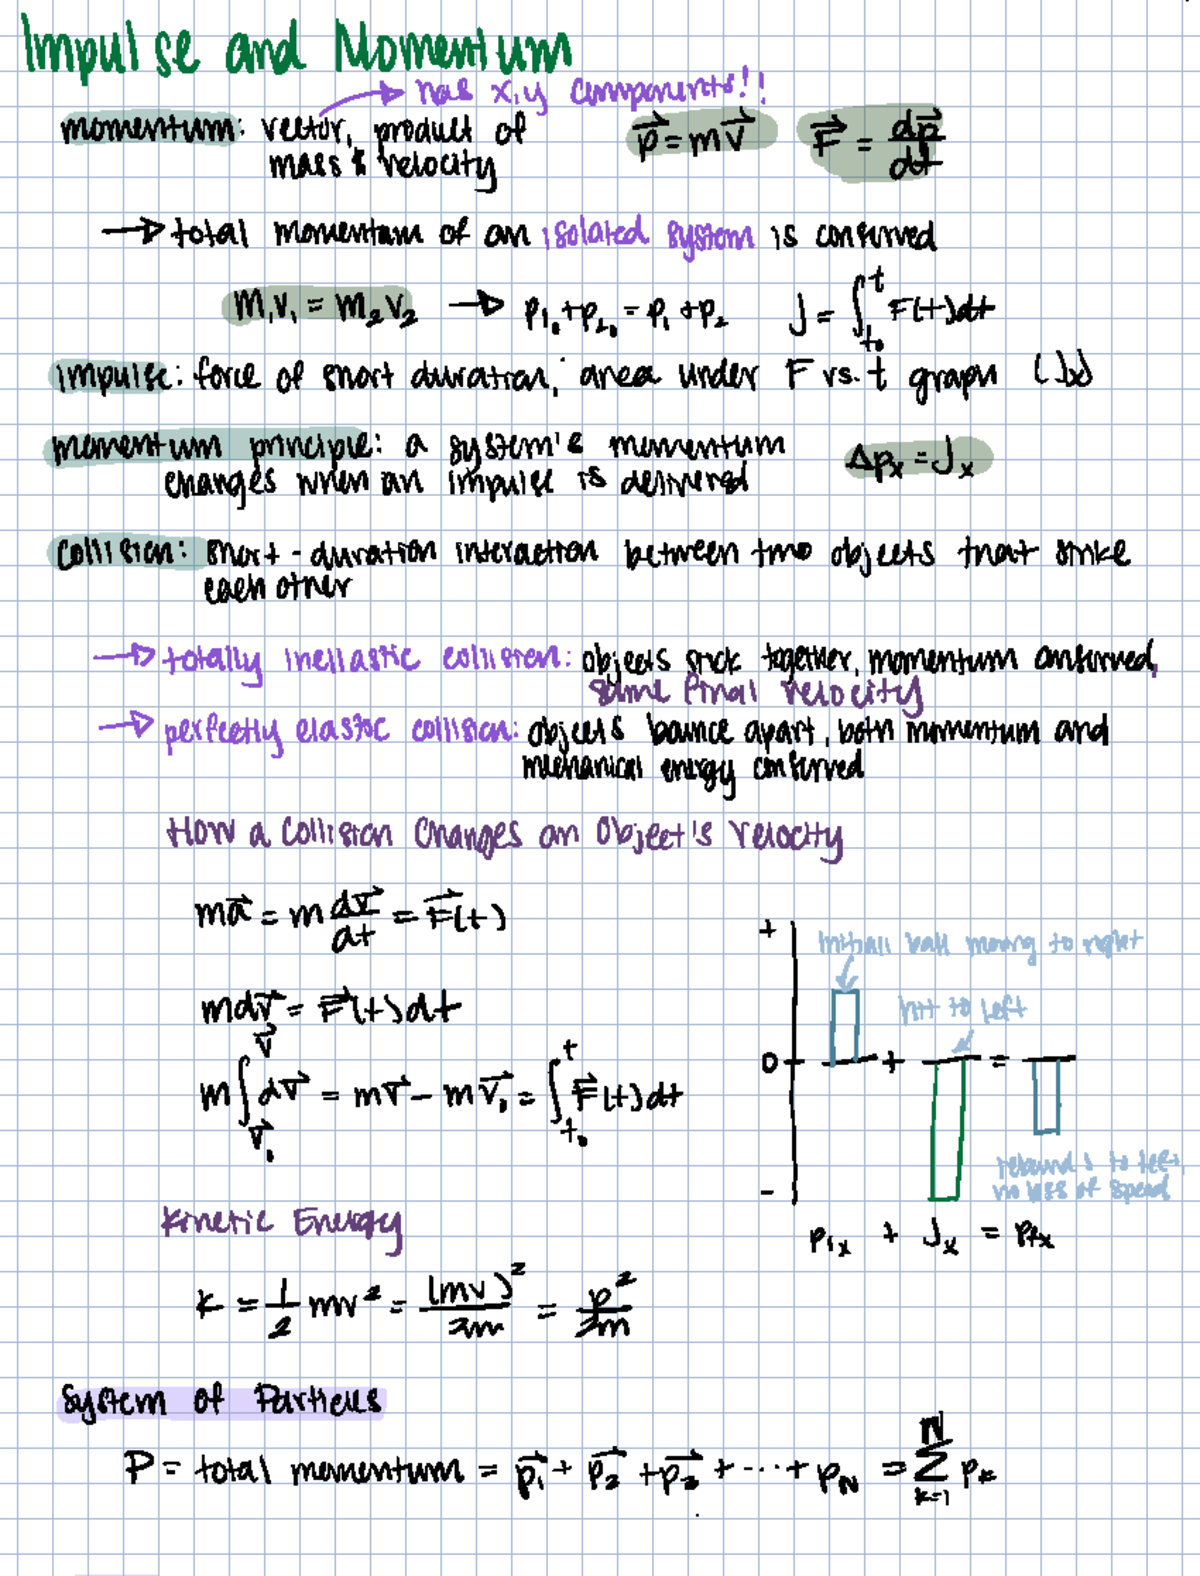 Impulse and Momentum
has x,y components!!
momentum: vector, product of
mass & velocity
p⃗ = mv⃗
F⃗ = dp⃗/dt
→ total momentum of an isolated system is conserved
m₁v₁ = m₂v₂ → p₁₀ + p₂₀ = p₁ + p₂
J = ∫ₜ₀ᵗ F(t)dt
impulse: force of short duration, area under F vs. t graph (Jx)
momentum principle: a system's momentum
changes when an impulse is delivered
Δpₓ = Jₓ
collision: short-duration interaction between two objects that strike
each other
→ totally inellastic collision: objects stick together, momentum conserved,
same final velocity
→ perfectly elastic collision: objects bounce apart, both momentum and
mechanical energy conserved
How a Collision Changes an Object's Velocity
ma⃗ = m dv⃗/dt = F⃗(t)
mdv⃗ = F⃗(t)dt
m∫ᵥ⃗₀ᵛ⃗ dv⃗ = mv⃗ - mv⃗₀ = ∫ₜ₀ᵗ F⃗(t)dt
+
initial ball moving to right
hit to left
0 + =
rebounds to left,
no loss of speed
-
pᵢₓ + Jₓ = pfₓ
Kinetic Energy
K = 1/2 mv² = (mv)²/2m = p²/2m
System of Particles
P = total momentum = p⃗₁ + p⃗₂ + p⃗₃ + ··· + pN = Σ k=1 N pₖ